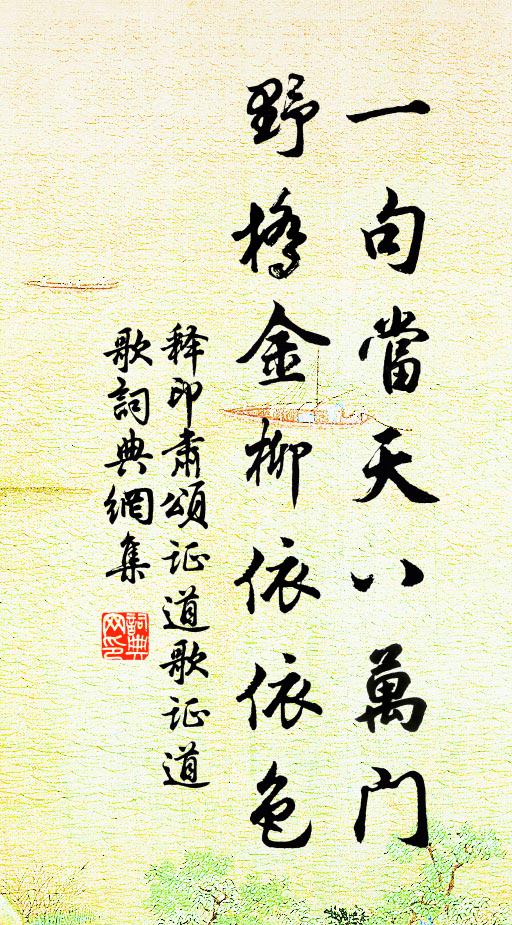 一句當天八萬門
野橋金柳依依色
释印肅頌证道歌证道
歌詞典網集
詞典
网印